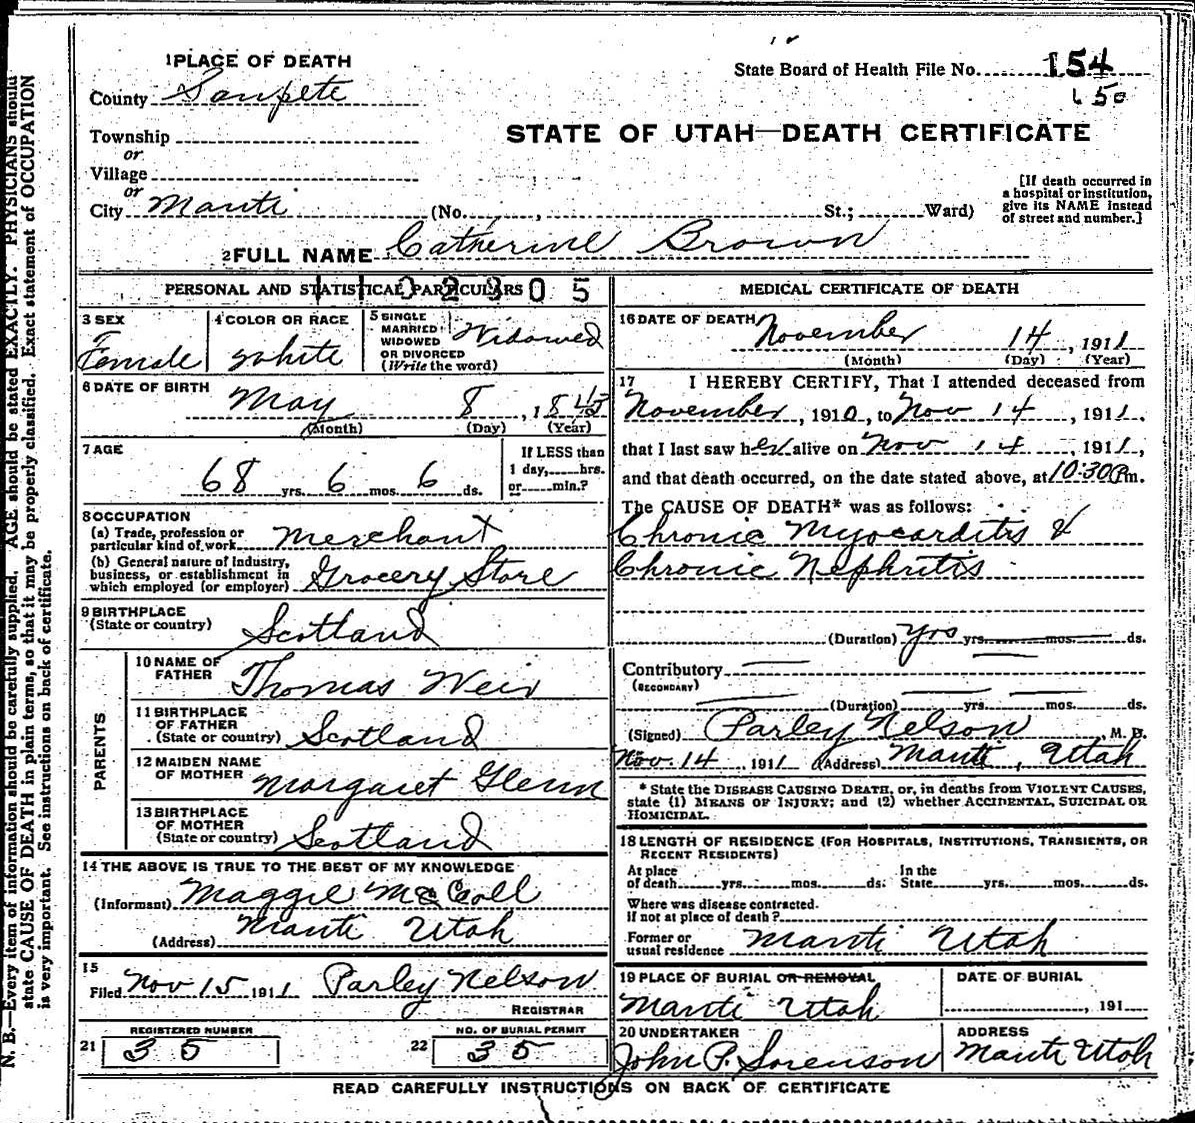 1 PLACE OF DEATH
County Sanpete
Township
or
Village
or
City Manti (No. , St.; Ward)
State Board of Health File No. 154
150
STATE OF UTAH—DEATH CERTIFICATE
[If death occurred in
a hospital or institution,
give its NAME instead
of street and number.]
2 FULL NAME Catherine Brown
PERSONAL AND STATISTICAL PARTICULARS
3 SEX
Female
4 COLOR OR RACE
white
5 SINGLE
MARRIED
WIDOWED
OR DIVORCED
(Write the word)
Widowed
6 DATE OF BIRTH
May 8, 1843
(Month) (Day) (Year)
7 AGE
68 yrs. 6 mos. 6 ds.
If LESS than
1 day,.....hrs.
or.....min.?
8 OCCUPATION
(a) Trade, profession or
particular kind of work Merchant
(b) General nature of industry,
business, or establishment in
which employed (or employer) Grocery Store
9 BIRTHPLACE
(State or country) Scotland
PARENTS
10 NAME OF
FATHER Thomas Weir
11 BIRTHPLACE
OF FATHER
(State or country) Scotland
12 MAIDEN NAME
OF MOTHER Margaret Glenn
13 BIRTHPLACE
OF MOTHER
(State or country) Scotland
14 THE ABOVE IS TRUE TO THE BEST OF MY KNOWLEDGE
(Informant) Maggie McColl
(Address) Manti Utah
15
Filed Nov 15 1911 Parley Nelson
REGISTRAR
REGISTERED NUMBER
21 35
NO. OF BURIAL PERMIT
22 35
MEDICAL CERTIFICATE OF DEATH
16 DATE OF DEATH
November 14, 1911
(Month) (Day) (Year)
17 I HEREBY CERTIFY, That I attended deceased from
November, 1910, to Nov 14, 1911,
that I last saw her alive on Nov 14, 1911,
and that death occurred, on the date stated above, at 10:30 P m.
The CAUSE OF DEATH* was as follows:
Chronic Myocarditis &
Chronic Nephritis
(Duration) yrs yrs. mos. ds.
Contributory
(SECONDARY)
(Duration) yrs. mos. ds.
(Signed) Parley Nelson, M. D.
Nov. 14 1911 (Address) Manti, Utah
* State the DISEASE CAUSING DEATH, or, in deaths from VIOLENT CAUSES,
state (1) MEANS OF INJURY; and (2) whether ACCIDENTAL, SUICIDAL OR
HOMICIDAL.
18 LENGTH OF RESIDENCE (FOR HOSPITALS, INSTITUTIONS, TRANSIENTS, OR
RECENT RESIDENTS)
At place In the
of death yrs. mos. ds. State yrs. mos. ds.
Where was disease contracted.
if not at place of death?
Former or
usual residence Manti Utah
19 PLACE OF BURIAL OR REMOVAL
Manti Utah
DATE OF BURIAL
, 191
20 UNDERTAKER
John P. Sorenson
ADDRESS
Manti Utah
READ CAREFULLY INSTRUCTIONS ON BACK OF CERTIFICATE
N. B.—Every item of information should be carefully supplied. AGE should be stated EXACTLY. PHYSICIANS should
state CAUSE OF DEATH in plain terms, so that it may be properly classified. Exact statement of OCCUPATION
is very important. See instructions on back of certificate.